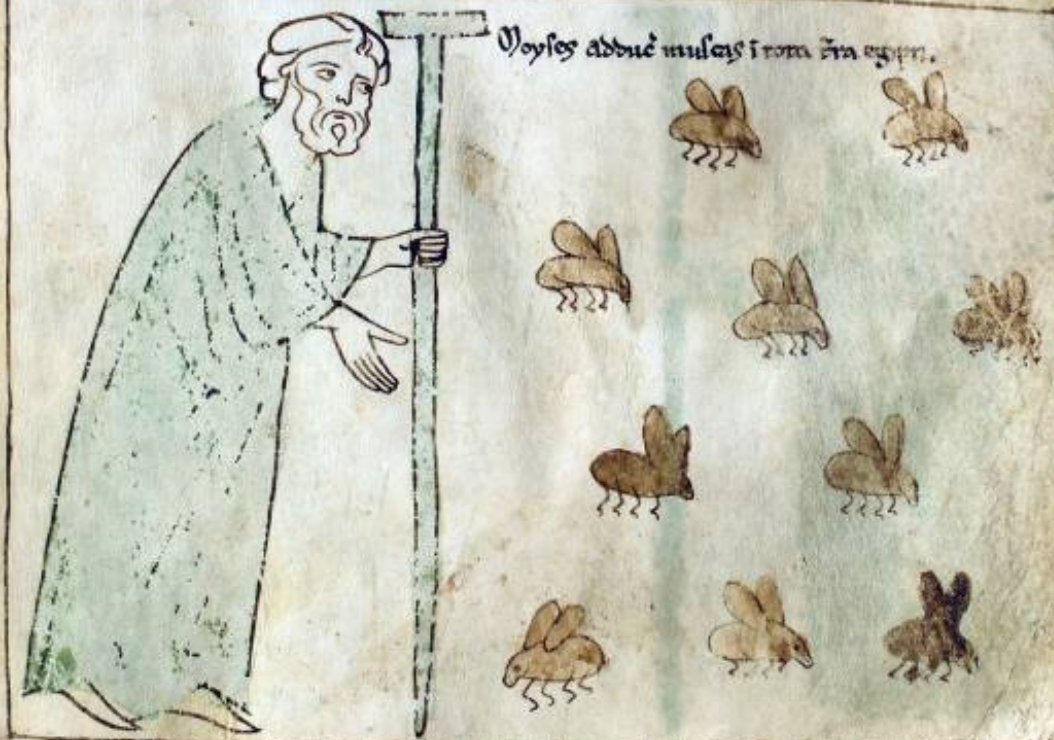 Moyses adduc̄ muscas ī tota t̄ra egypti.